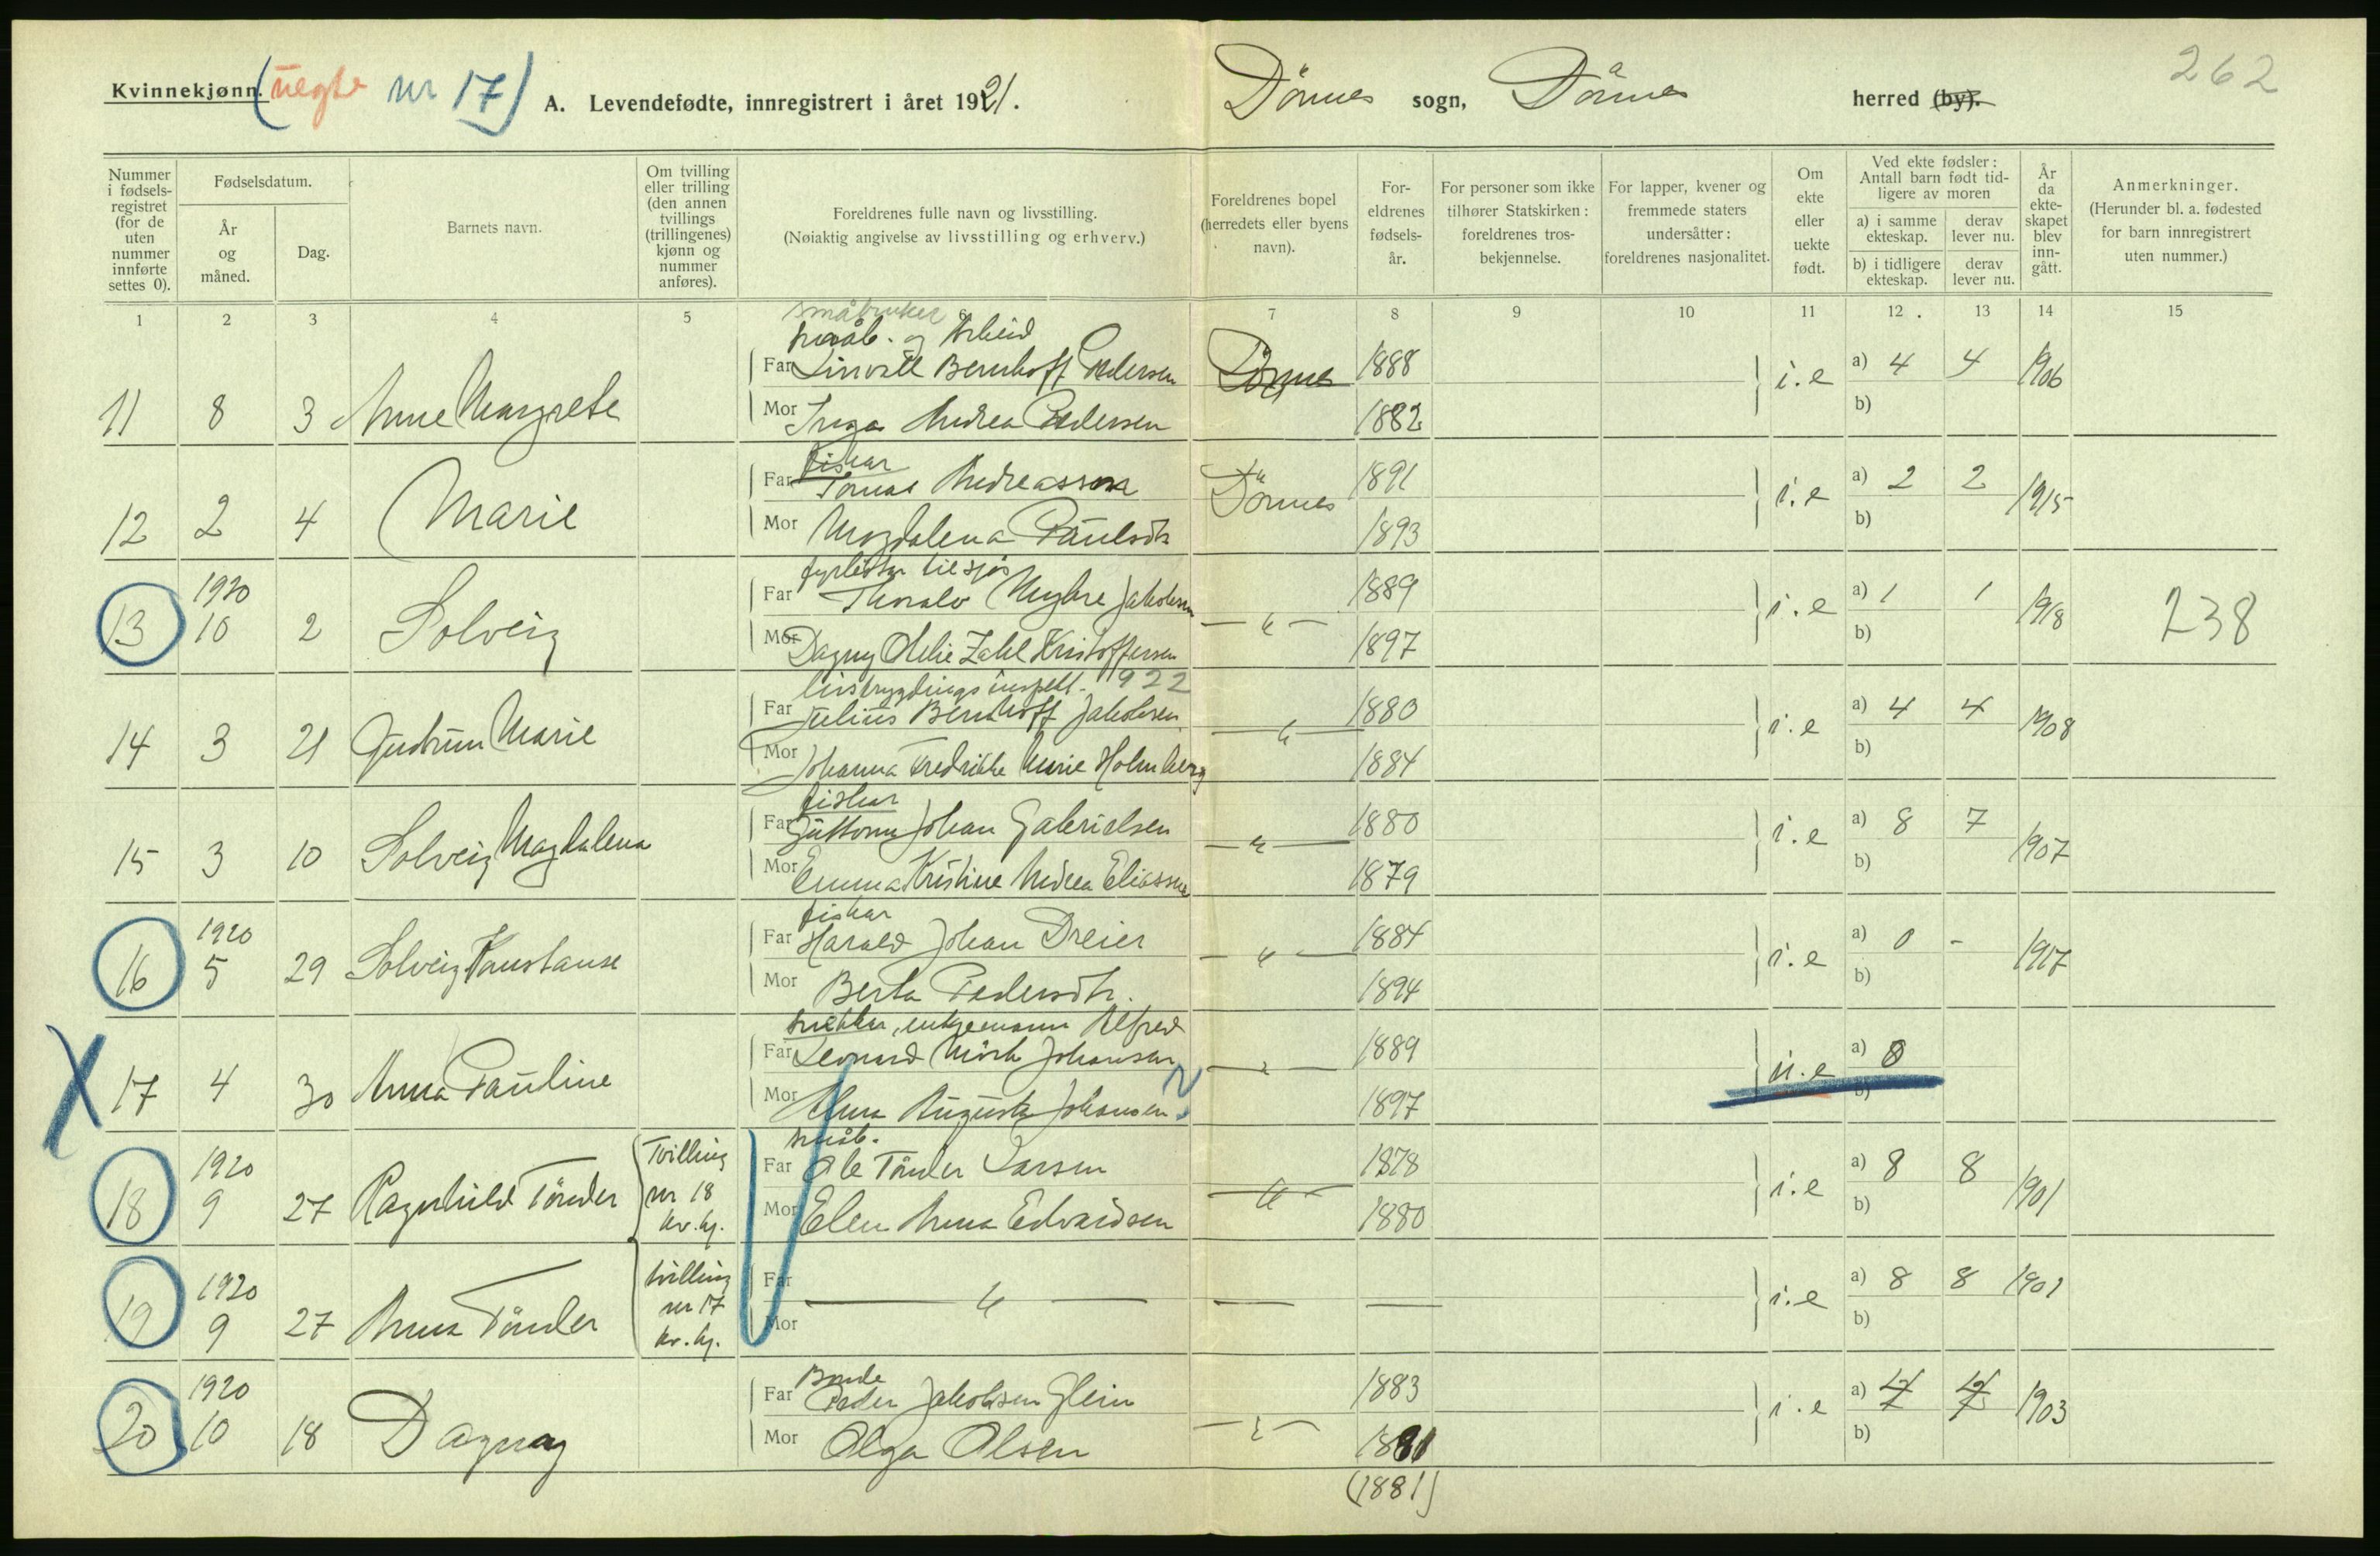 Kvinnekjønn. (uegte nr 17)
A. Levendefødte, innregistrert i året 1921.
Dönnes sogn, Dönnes herred (by).
262
Nummer i fødsels-registret (for de uten nummer innførte settes 0).
Fødselsdatum.
År og måned.
Dag.
Barnets navn.
Om tvilling eller trilling (den annen tvillings (trillingenes) kjønn og nummer anføres).
Foreldrenes fulle navn og livsstilling.
(Nøiaktig angivelse av livsstilling og erhverv.)
Foreldrenes bopel (herredets eller byens navn).
For-eldrenes fødsels-år.
For personer som ikke tilhører Statskirken: foreldrenes tros-bekjennelse.
For lapper, kvener og fremmede staters undersåtter: foreldrenes nasjonalitet.
Om ekte eller uekte født.
Ved ekte fødsler: Antall barn født tid-ligere av moren
a) i samme ekteskap. derav lever nu.
b) i tidligere ekteskap. derav lever nu.
År da ekte-skapet blev inn-gått.
Anmerkninger.
(Herunder bl. a. fødested for barn innregistrert uten nummer.)
1 2 3 4 5 6 7 8 9 10 11 12. 13 14 15
småbruker
småb. og Arbeid
Far Linvall Bernhoff Pedersen Dönnes 1888
11 8 3 Anne Margrete i.e a) 4 4 1906
Mor Inga Andrea Pedersen 1882 b)
fisker
Far Tomas Andreassen Dönnes 1891
12 2 4 Marie i.e a) 2 2 1915
Mor Magdalena Paulsdtr 1893 b)
fyrböter til sjös
Far Thoralv Myhre Jakobsen 1889
13 1920 10 2 Solveig — " — i.e a) 1 1 1918 238
Mor Dagny Othelie Zahl Kristoffersen 1897 b)
inspekt. 922
Far Julius Bernhoff Jakobsen 1880
14 3 21 Gudrun Marie — " — i.e a) 4 4 1908
Mor Johanna Fredrikke Marie Holmberg 1884 b)
fisker
Far Guttorm Johan Gabrielsen 1880
15 3 10 Solveig Magdalena — " — i.e a) 8 7 1907
Mor Emma Kristine Andrea Eliassen 1879 b)
fisker
Far Harald Johan Dreier 1884
16 1920 5 29 Solveig Konstanse — " — i.e a) 0 - 1917
Mor Berta Pedersdtr. 1894 b)
snekker, enkemann Alfred
Far Leonard Mörk Johansen 1889
X 17 4 30 Anna Pauline — " — u.e a) 0
Mor Alma Augusta Johansen ? 1897 b)
småb.
Far Ole Tönder Larsen 1878
18 1920 9 27 Ragnhild Tönder Tvilling nr 18 kv.kj. — " — i.e a) 8 8 1901
Mor Elen Anna Edvardsen 1880 b)
19 1920 9 27 Anna Tönder tvilling nr 17 kv.kj. Far — " — Mor — — i.e a) 8 8 1901 b)
Bonde
Far Peder Jakobsen Glein 1883
20 1920 10 18 Dagny — " — i.e a) 7 7 1903
Mor Olga Olsen 1881 b)
(1881)